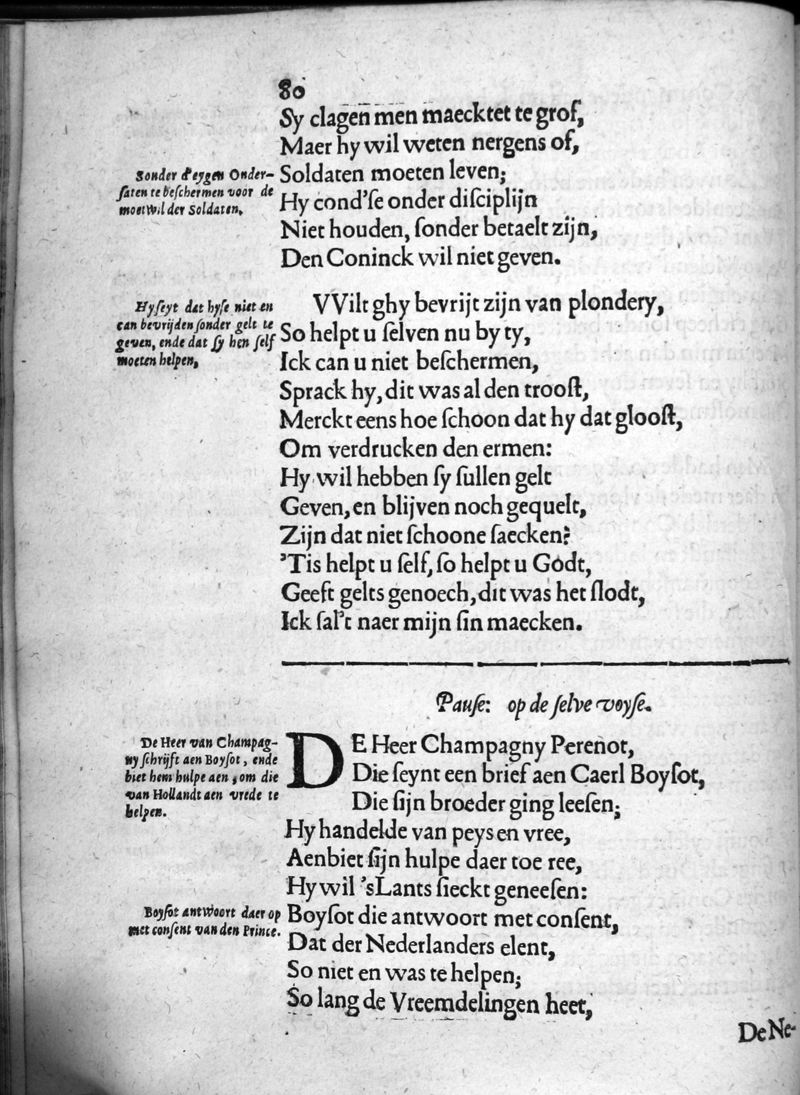 80
Sy clagen men maecktet te grof,
Maer hy wil weten nergens of,
Sonder sijn eygen Onder-
saten te beschermen voor de
moetwil der Soldaten,
Soldaten moeten leven;
Hy cond'se onder disciplijn
Niet houden, sonder betaelt zijn,
Den Coninck wil niet geven.
Hy seyt dat hyse niet en
can bevrijden sonder gelt te
geven, ende dat sy hen self
moeten helpen,
VVilt ghy bevrijt zijn van plondery,
So helpt u selven nu by ty,
Ick can u niet beschermen,
Sprack hy, dit was al den troost,
Merckt eens hoe schoon dat hy dat gloost,
Om verdrucken den ermen:
Hy wil hebben sy sullen gelt
Geven, en blijven noch gequelt,
Zijn dat niet schoone saecken?
'Tis helpt u self, so helpt u Godt,
Geeft gelts genoech, dit was het slodt,
Ick sal't naer mijn sin maecken.
Pause: op de selve voyse.
De Heer van Champag-
ny schrijft aen Boysot, ende
biet hem hulpe aen, om die
van Hollandt aen vrede te
helpen.
DE Heer Champagny Perenot,
Die seynt een brief aen Caerl Boysot,
Die sijn broeder ging leesen;
Hy handelde van peys en vree,
Aenbiet sijn hulpe daer toe ree,
Hy wil 'sLants sieckt geneesen:
Boysot antwoort daer op
met consent van den Prince.
Boysot die antwoort met consent,
Dat der Nederlanders elent,
So niet en was te helpen;
So lang de Vreemdelingen heet,
De Ne-